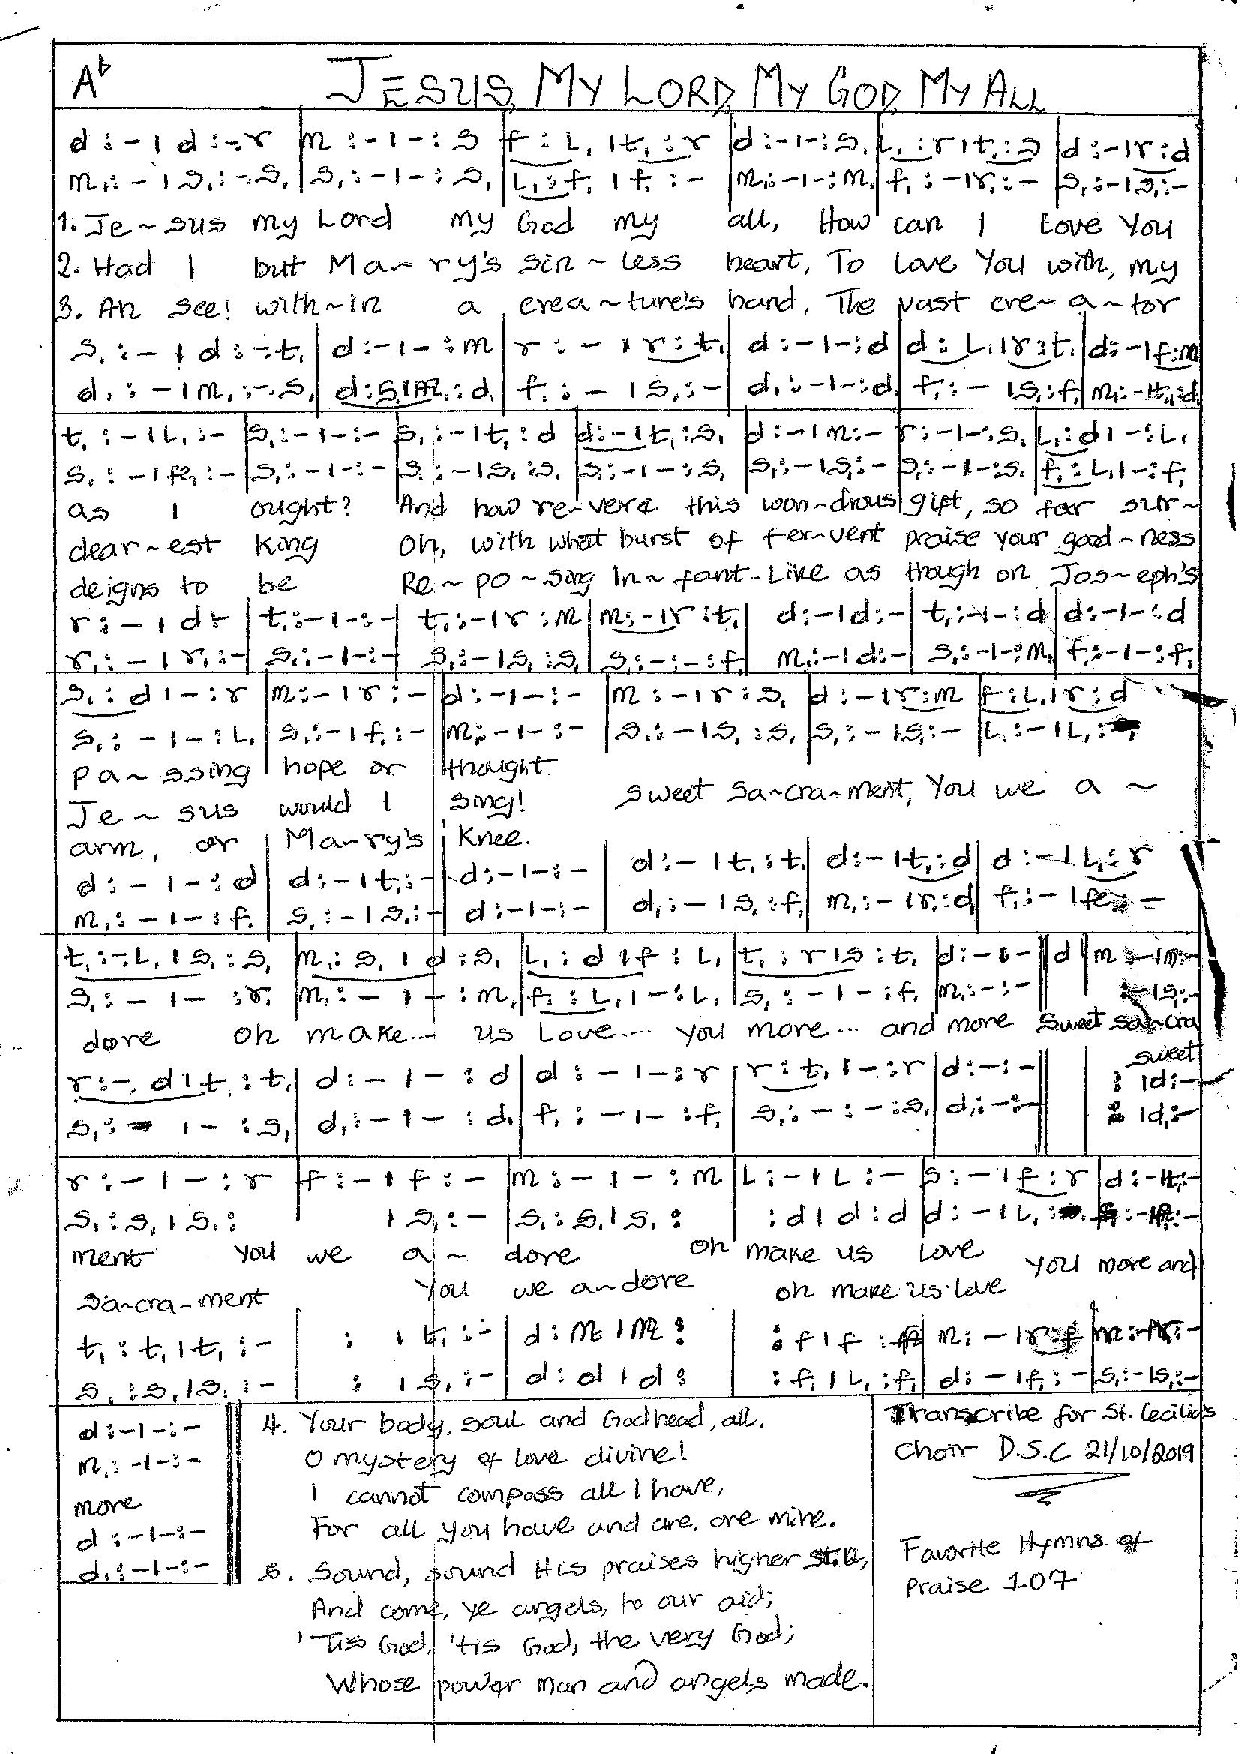 A♭ JESUS, MY LORD, MY GOD, MY ALL
d :- | d :-.r | m :- | - : s | f : l, | t, : r | d :- | - : s, | l, : r | t, : s | d :- | r : d
m, :- | s, :-.s, | s, :- | - : s, | l, : f, | f, :- | m, :- | - : m, | f, :- | r, :- | s, :- | s, :-
1. Je~sus my Lord my God my all, How can I Love You
2. Had I but Ma~ry's sin~less heart, To love You with, my
3. Ah see! with~in a crea~ture's hand, The vast cre~a~tor
s, :- | d :-.t, | d :- | - : m | r :- | r : t, | d :- | - : d | d : l, | r : t, | d :- | f : m
d, :- | m, :-.s, | d : s, | m, : d, | f, :- | s, :- | d, :- | - : d, | f, :- | s, : f, | m, :- | l, : d,
t, :- | l, :- | s, :- | - :- | s, :- | t, : d | d :- | t, : s, | d :- | m :- | r :- | - : s, | l, : d | - : l,
s, :- | fe, :- | s, :- | - :- | s, :- | s, : s, | s, :- | - : s, | s, :- | s, :- | s, :- | - : s, | f, : l, | - : f,
as I ought? And how re~vere this won~drous gift, so far sur~
dear~est King Oh, with what burst of fer~vent praise your good~ness
deigns to be Re~po~sing In~fant-Like as though on Jos~eph's
r :- | d :- | t, :- | - :- | t, :- | r : m | m :- | r : t, | d :- | d :- | t, :- | - : d | d :- | - : d
r, :- | r, :- | s, :- | - :- | s, :- | s, : s, | s, :- | - : f, | m, :- | d :- | s, :- | - : m, | f, :- | - : f,
s, : d | - : r | m :- | r :- | d :- | - :- | m :- | r : s, | d :- | r : m | f : l, | r : d
s, :- | - : l, | s, :- | f, :- | m, :- | - :- | s, :- | s, : s, | s, :- | s, :- | l, :- | l, :
pa~ssing hope or thought
Je~sus would I sing! Sweet Sa~cra~ment, You we a~
arm, or Ma~ry's Knee.
d :- | - : d | d :- | t, :- | d :- | - :- | d :- | t, : t, | d :- | t, : d | d :- | l, : r
m, :- | - : f, | s, :- | s, :- | d :- | - :- | d, :- | s, : f, | m, :- | r, : d, | f, :- | fe, :-
t, :-.l, | s, : s, | m, : s, | d : s, | l, : d | f : l, | t, : r | s : t, | d :- | - | d | m :- | m :-
s, :- | - : r, | m, :- | - : m, | f, : l, | - : l, | s, :- | - : f, | m, :- | - | : | s, :-
dore oh make... us Love... you more... and more Sweet Sa~cra
sweet
r :-.d | t, : t, | d :- | - : d | d :- | - : r | r : t, | - : r | d :- | - | : | d :-
s, :- | - : s, | d, :- | - : d, | f, :- | - : f, | s, :- | - : s, | d, :- | - | : | d, :-
r :- | - : r | f :- | f :- | m :- | - : m | l :- | l :- | s :- | f : r | d :- | t, :-
s, : s, | s, : | s, :- | s, : s, | s, : | : d | d : d | d :- | l, :
ment You we a~ dore oh make us love You more and
sa~cra~ment You we a~dore oh make us love
t, : t, | t, :- | : | t, :- | d : m | m : | : f | f : | m :- | r : f | m :- | r :-
s, : s, | s, :- | : | s, :- | d : d | d : | : f, | l, : f, | d :- | f, :- | s, :- | s, :-
d :- | - :-
m, :- | - :-
more
d :- | - :-
d, :- | - :-
4. Your body, soul and Godhead, all.
O mystery of love divine!
I cannot compass all I have,
For all you have and are, are mine.
5. Sound, sound His praises higher still,
And come, ye angels, to our aid;
'Tis God, 'tis God, the very God;
Whose power man and angels made.
Transcribe for St. Cecilia's
Choir D.S.C 21/10/2019
Favorite Hymns of
Praise 107